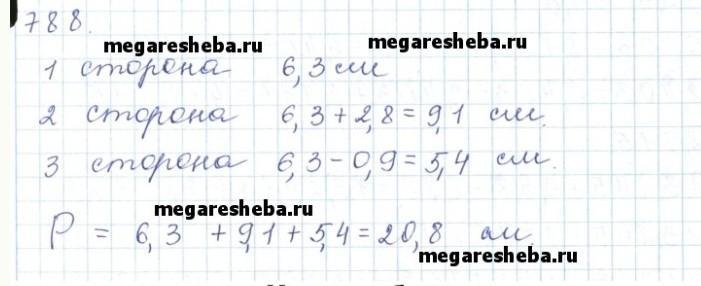 788.
megaresheba.ru megaresheba.ru
1 сторона 6,3 см
2 сторона 6,3 + 2,8 = 9,1 см.
3 сторона 6,3 - 0,9 = 5,4 см.
megaresheba.ru
P = 6,3 + 9,1 + 5,4 = 20,8 см.
megaresheba.ru